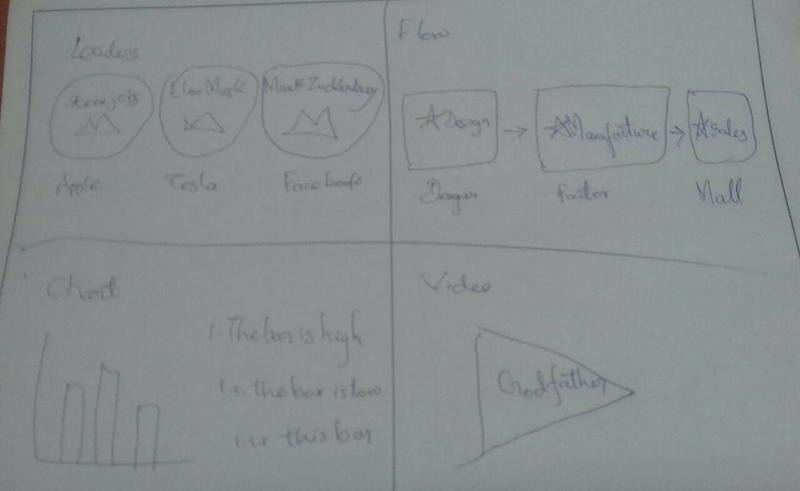 Leaders
Steve jobs
Elon Musk
Mark Zuckerberg
Apple
Tesla
Facebook
Flow
Design
Manufacture
Sales
Mall
Chart
1. The bar is high
the bar is low
this bar
Video
Godfather